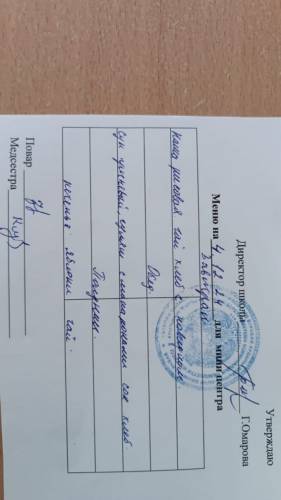 Утверждаю
Директор школы Г.Омарова
Меню на 4.12.24 для мини центра
Завтрак
каша рисовая чай хлеб с повидлом
Обед
суп гречневый, гуляш с макаронами сок хлеб
Полдник.
печенье яблоки чай.
Повар
Медсестра